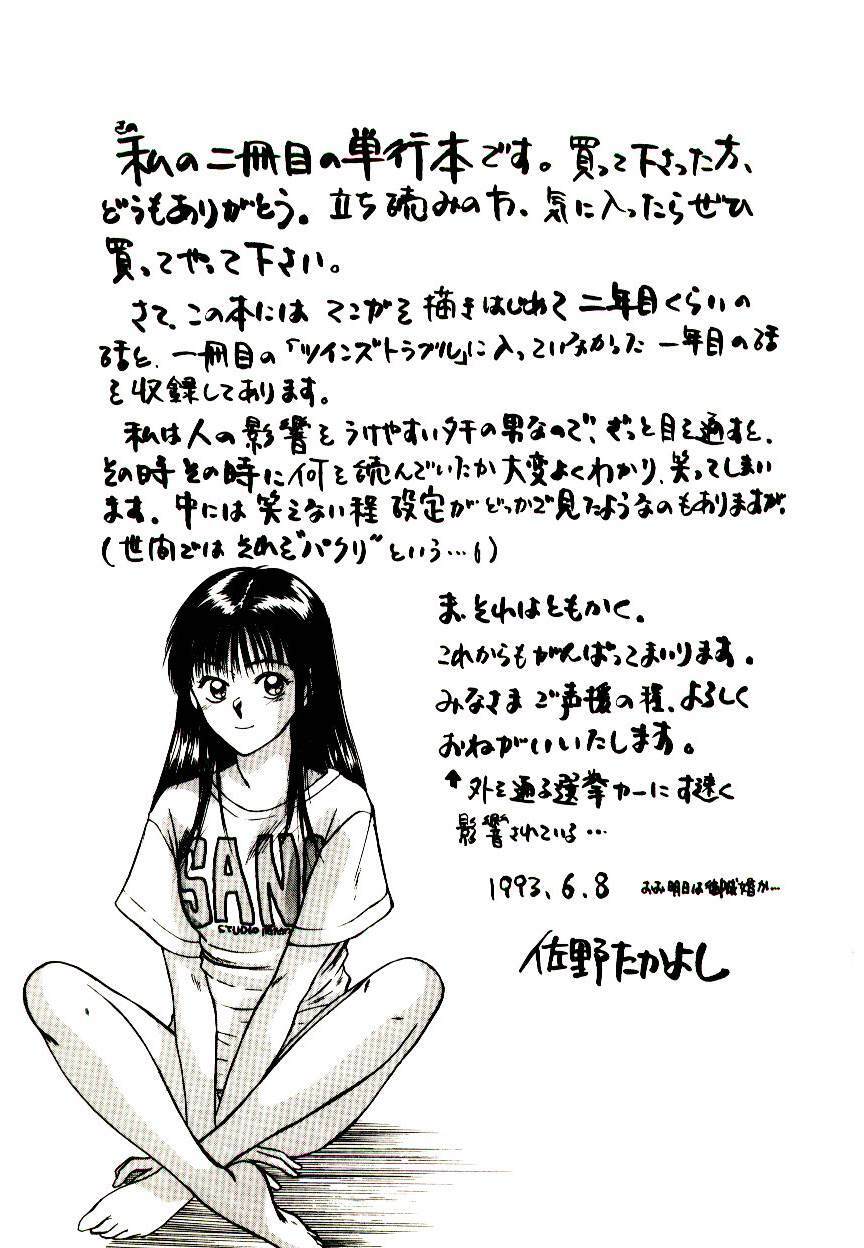 さの
私の二冊目の単行本です。買って下さった方、
どうもありがとう。立ち読みの方、気に入ったらぜひ
買ってやって下さい。
さて、この本には マンガを 描きはじめて 二年目くらいの
話と、一冊目の「ツインズトラブル」に入っていなかった 一年目の話
を収録してあります。
私は人の影響を うけやすいタチの男なので、ざっと目を通すと、
その時その時に何を読んでいたか大変よくわかり、笑ってしまい
ます。中には 笑えない程 設定が どっかで見たようなのもありますが、
(世間では それを"パクリ"という…)
ま、それはともかく。
これからもがんばってまいります。
みなさま ご声援の程、よろしく
おねがいいたします。
↑外を通る選挙カーにす速く
影響されている…
1993.6.8 明日は御成婚か…
佐野たかよし
SAN
STUDIO